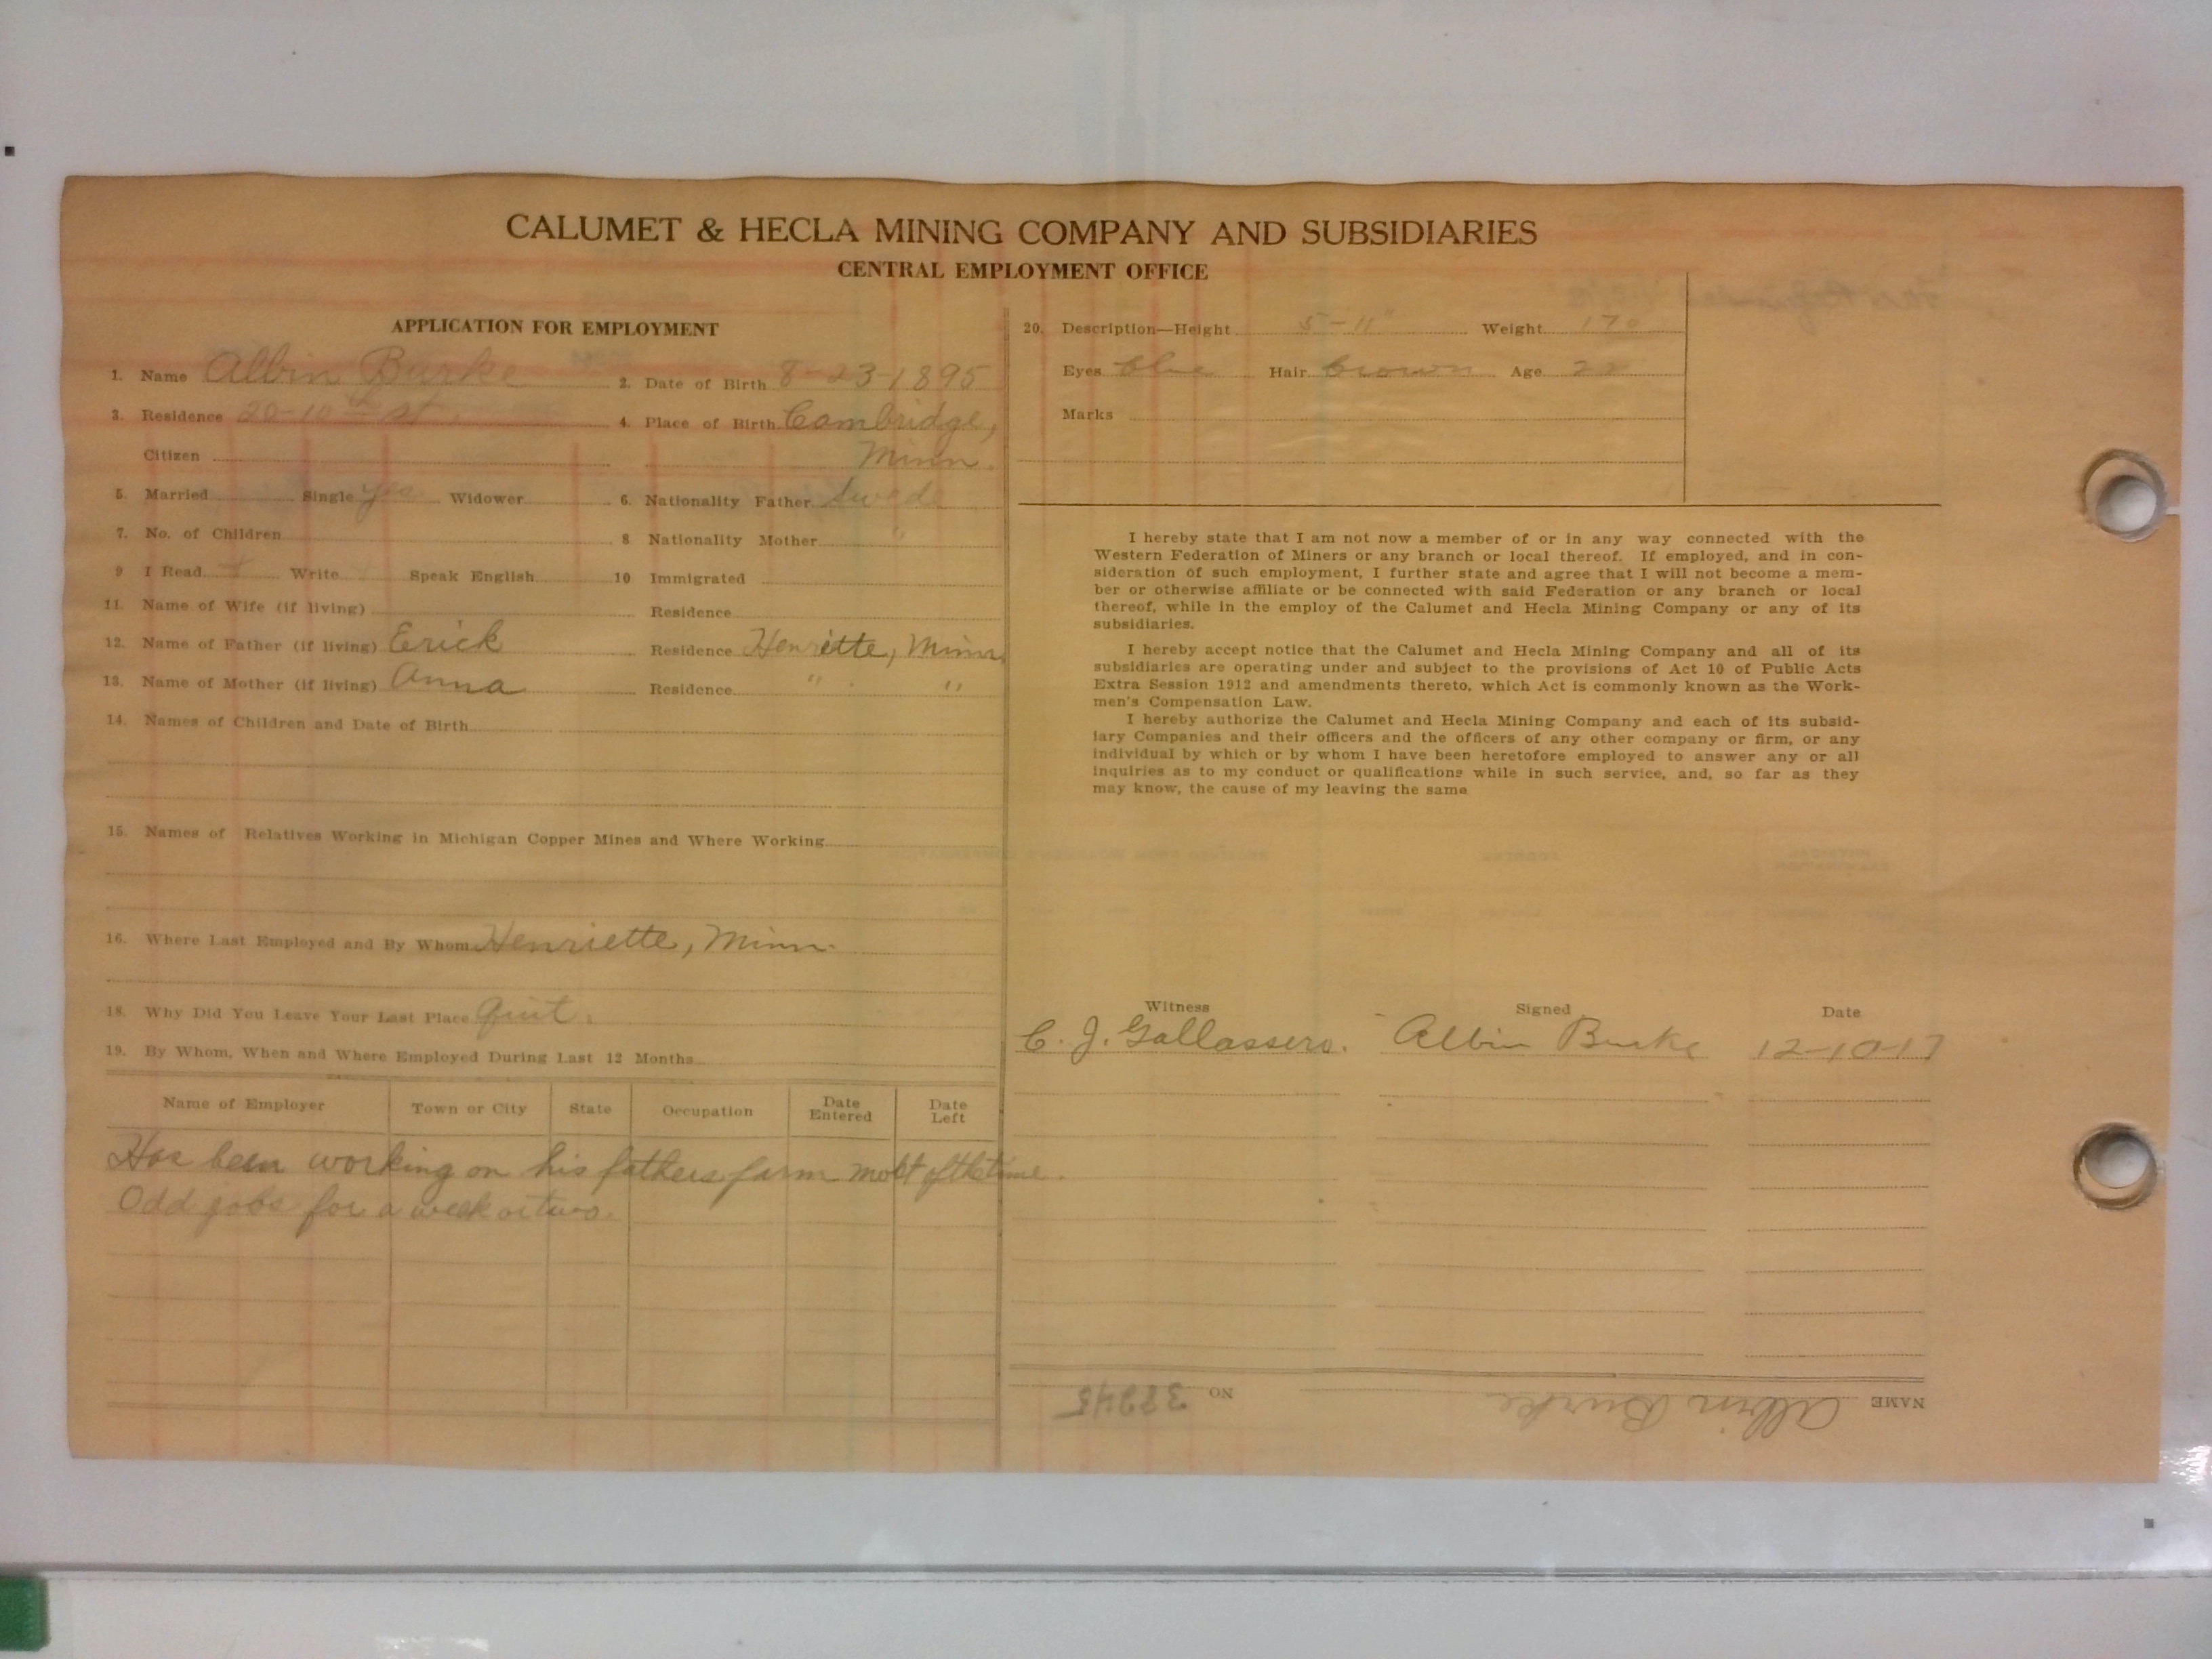 CALUMET & HECLA MINING COMPANY AND SUBSIDIARIES
CENTRAL EMPLOYMENT OFFICE
APPLICATION FOR EMPLOYMENT
1. Name Albin Burke 2. Date of Birth 8-23-1895
3. Residence 20-10th St. 4. Place of Birth Cambridge,
Citizen Minn.
5. Married Single yes Widower 6. Nationality Father Swede
7. No. of Children 8 Nationality Mother "
9 I Read Write Speak English 10 Immigrated
11. Name of Wife (if living) Residence
12. Name of Father (if living) Erick Residence Henriette, Minn
13. Name of Mother (if living) Anna Residence " "
14. Names of Children and Date of Birth
15. Names of Relatives Working in Michigan Copper Mines and Where Working
16. Where Last Employed and By Whom Henriette, Minn.
18. Why Did You Leave Your Last Place Quit.
19. By Whom, When and Where Employed During Last 12 Months
Name of Employer Town or City State Occupation Date Entered Date Left
Has been working on his fathers farm most of the time.
Odd jobs for a week or two.
20. Description—Height 5-11" Weight 170
Eyes blue Hair brown Age 22
Marks
I hereby state that I am not now a member of or in any way connected with the
Western Federation of Miners or any branch or local thereof. If employed, and in con-
sideration of such employment, I further state and agree that I will not become a mem-
ber or otherwise affiliate or be connected with said Federation or any branch or local
thereof, while in the employ of the Calumet and Hecla Mining Company or any of its
subsidiaries.
I hereby accept notice that the Calumet and Hecla Mining Company and all of its
subsidiaries are operating under and subject to the provisions of Act 10 of Public Acts
Extra Session 1912 and amendments thereto, which Act is commonly known as the Work-
men's Compensation Law.
I hereby authorize the Calumet and Hecla Mining Company and each of its subsid-
iary Companies and their officers and the officers of any other company or firm, or any
individual by which or by whom I have been heretofore employed to answer any or all
inquiries as to my conduct or qualifications while in such service, and, so far as they
may know, the cause of my leaving the same
Witness Signed Date
C. J. Gallassero. Albin Burke 12-10-17
NAME Albin Burke NO